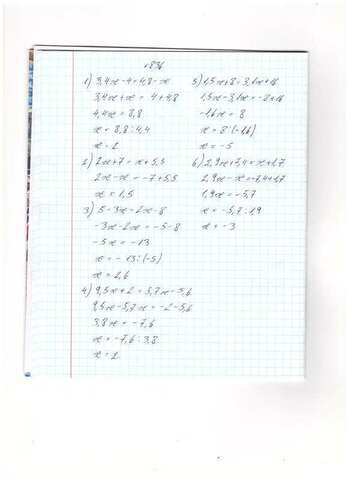 1836
1) 3,4x-4=4,8-x
3,4x+x = 4+4,8
4,4x = 8,8
x = 8,8:4,4
x = 2
2) 2x+7 = x+5,5
2x-x = -7+5,5
x = 1,5
3) 5-3x=2x-8
-3x-2x = -5-8
-5x = -13
x = -13:(-5)
x = 2,6
4) 9,5x+2 = 5,7x-5,6
9,5x-5,7x = -2-5,6
3,8x = -7,6
x = -7,6:3,8
x = 2
5) 1,5x+8=3,1x+16
1,5x-3,1x = -8+16
-1,6x = 8
x = 8:(-1,6)
x = -5
6) 2,9x+7,4=x+1,7
2,9x-x=-7,4+1,7
1,9x = -5,7
x = -5,7:1,9
x = -3